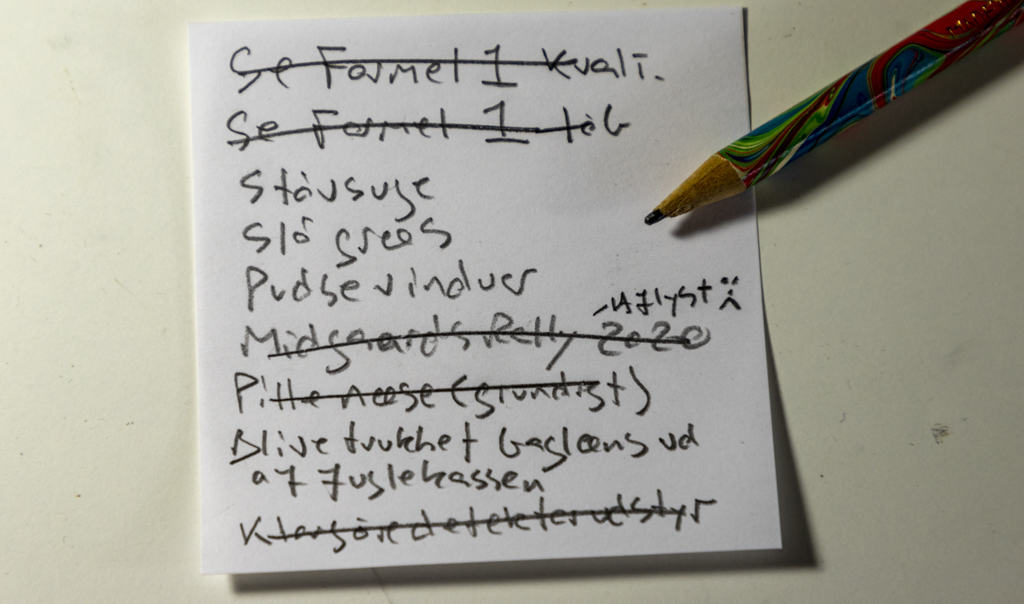 Se Formel 1 Kvali.
Se Formel 1 løb
Støvsuge
Slå græs
Pudse vinduer
- Aflyst :(
Midgaards Rally 2020
Pille næse (grundigt)
Blive trukket baglæns ud
af fuglekassen
Klargøre detekterudstyr